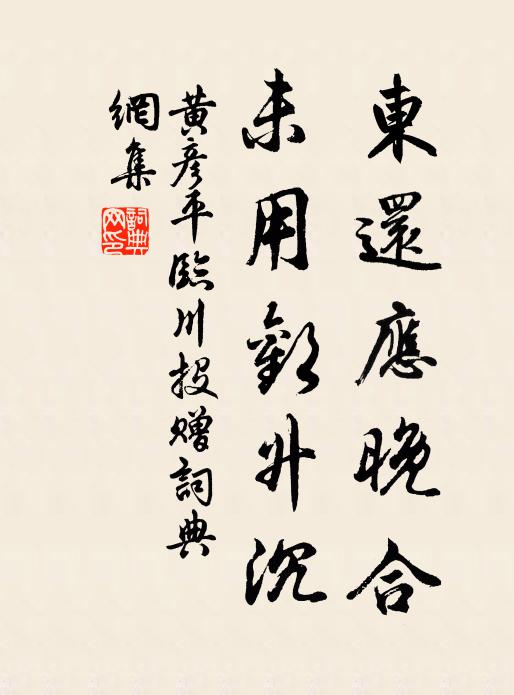 東還應晚合
未用歎升沉
黃彥平臨川投贈詞典
網集
詞典
网印